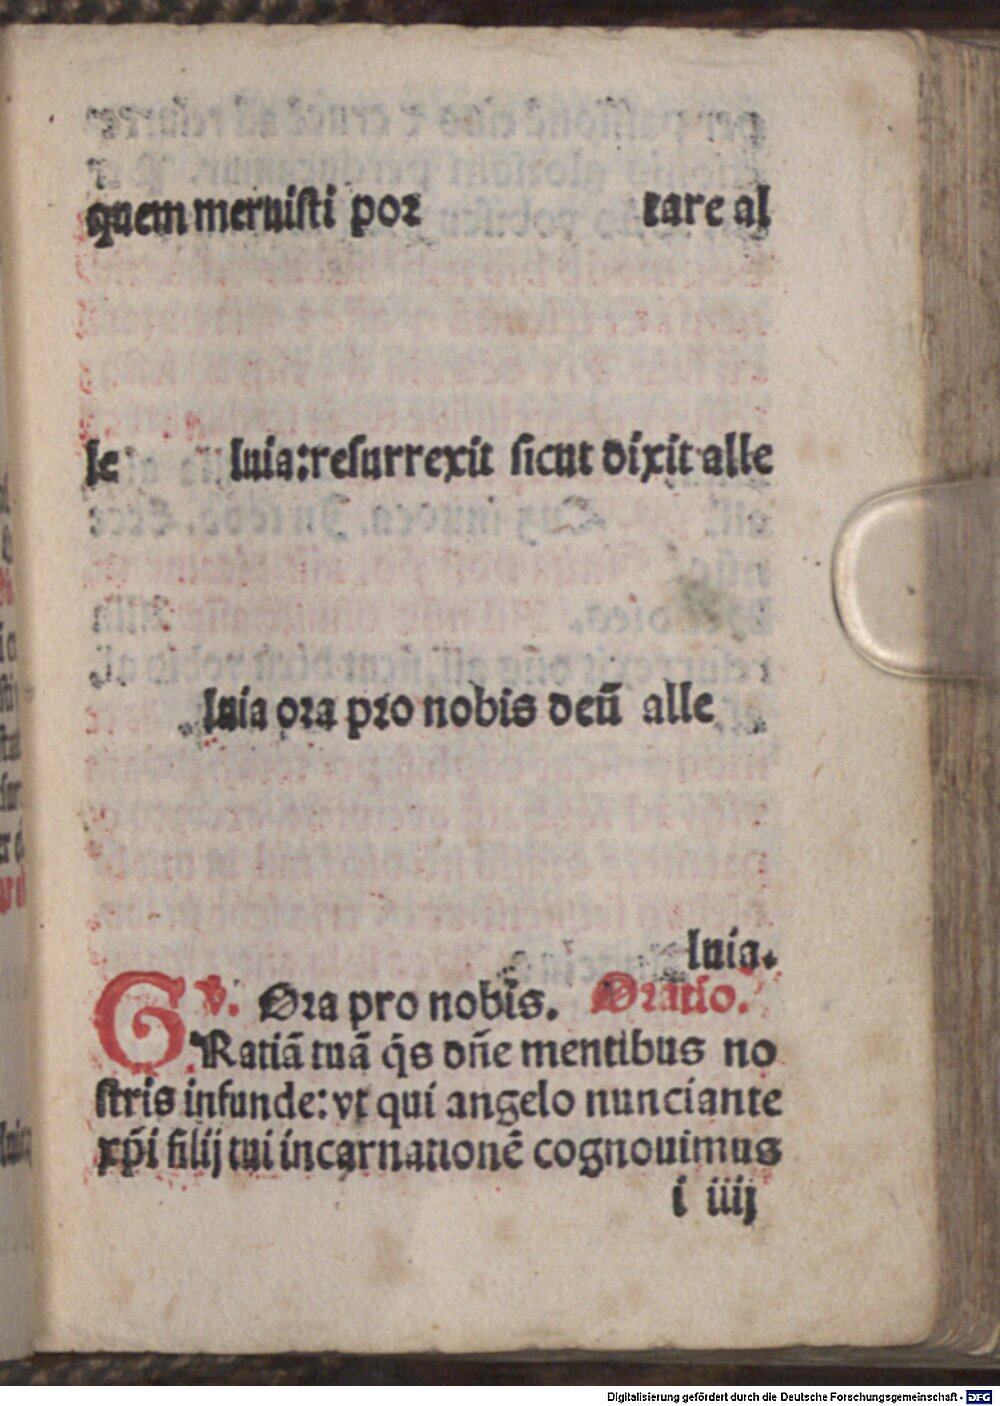 quem meruisti por tare al
le luia: resurrexit sicut dixit alle
luia ora pro nobis deū alle
luia.
v. Ora pro nobis. Oratio.
GRatiā tuā q̄s dn̄e mentibus no
stris infunde: vt qui angelo nunciante
xp̄i filij tui incarnationē cognouimus
i iiij
Digitalisierung gefördert durch die Deutsche Forschungsgemeinschaft - DFG